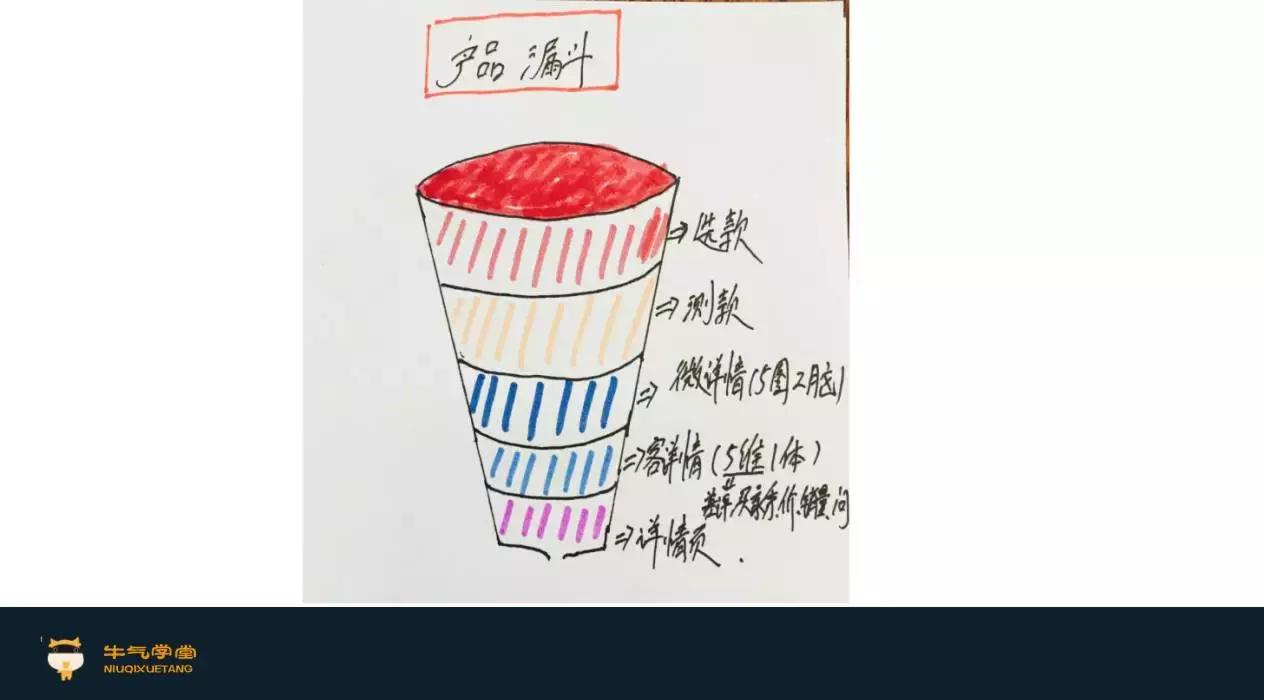 产品漏斗
⇒选款
⇒测款
⇒微详情(5图2脑)
⇒客详情(5维1体)
买家秀.价.销量.问
⇒详情页.
牛气学堂
NIUQIXUETANG